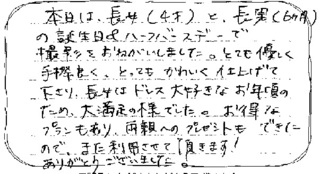 本日は、長女(4才)と、長男(6ヶ月)
の誕生日式ハーフバースデーで
撮影をおねがいしました。とても優しく
手際良く、とってもかわいく仕上げて
下さり、長女はドレス大好きなお年頃の
ため、大満足の様でした。お得な
プランもあり、両親へのプレゼントもできた
ので、また利用させて頂きます!
ありがとうございました。